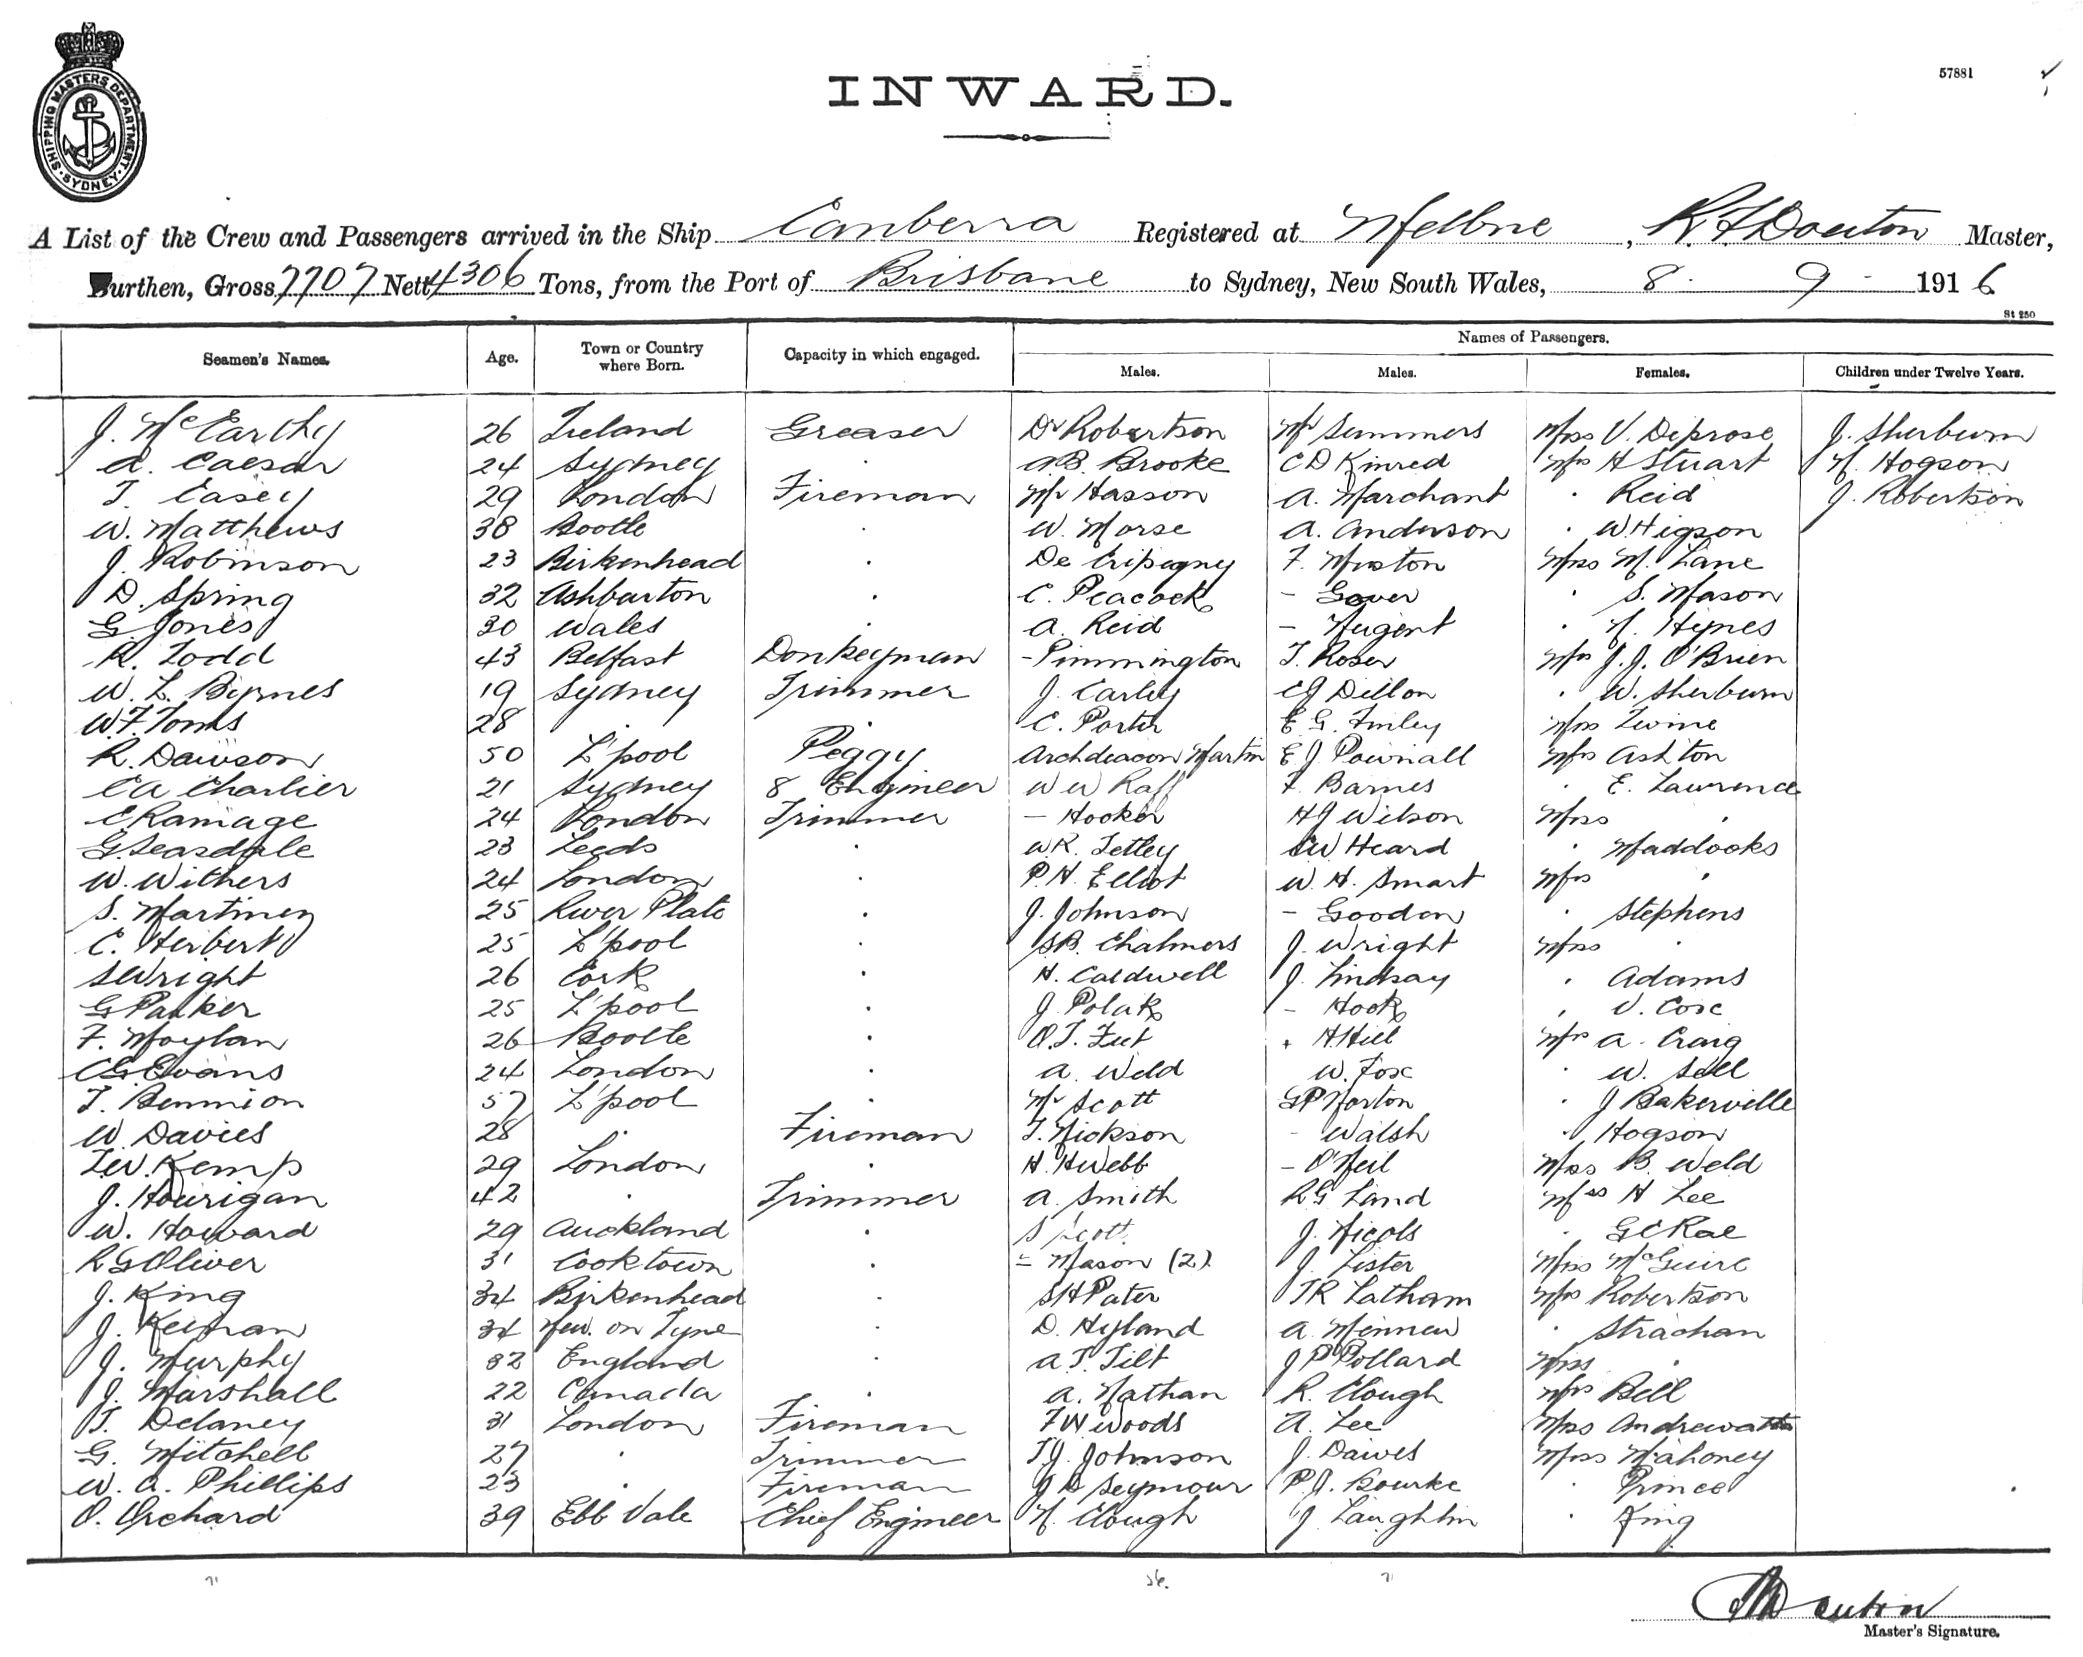 SHIPPING MASTERS DEPARTMENT · SYDNEY ·
57881
INWARD.
A List of the Crew and Passengers arrived in the Ship Canberra Registered at Melbne, R.F. Douton Master,
Burthen, Gross 7707 Nett 4306 Tons, from the Port of Brisbane to Sydney, New South Wales, 8 · 9 · 1916
St 250
Names of Passengers.
Seamen's Names. Age. Town or Country where Born. Capacity in which engaged. Males. Males. Females. Children under Twelve Years.
J. McCarthy 26 Ireland Greaser Dr Robertson Mr Summers Miss V. Deprose J. Sherburn
A. Caesar 24 Sydney · A.B. Brooke C D Kinred Mrs H Stuart N. Hogson
T. Casey 29 London Fireman Mr Hasson A. Marchant · Reid J. Robertson
W. Matthews 38 Bootle · W. Morse A. Anderson · W Higson
J. Robinson 23 Birkenhead · De F. Miss M. Lane
D. Spring 32 Ashburton · C. Peacock - Gover · S. Mason
G. Jones 30 Wales · A. Reid - Nugent · N. Hynes
R. Todd 43 Belfast Donkeyman - Pimmington T. Roser Mrs J. J. O'Brien
W. L. Byrnes 19 Sydney Trimmer J. Carley C J Dillon · W. Sherburn
W. F. Toms 28 · · C. Porter E. G. Finley Miss Twine
R. Dawson 50 L'pool Peggy Archdeacon Martin E J Pownall Mrs Ashton
C A Charlier 21 Sydney 8 Engineer W W Raff F Barnes · E. Lawrence
C Ramage 24 London Trimmer - Hooker H J Wilson Miss ·
G. Teasdale 23 Leeds · W R. Tetley S W Heard · Maddocks
W. Withers 24 London · P. H. Elliot W. H. Smart Mrs ·
S. Martinez 25 River Plate · J. Johnson - Gooden · Stephens
C. Herbert 25 L'pool · S B. Chalmers J. Wright Miss ·
S Wright 26 Cork · H. Caldwell J. Lindsay · Adams
G Parker 25 L'pool · J Polak - Hook · V. Cox
F. Moylan 26 Bootle · O. T. H Hill Mrs A. Craig
C G Evans 24 London · A. Weld W. Fox · W. Sell
T. Bennion 57 L'pool · Mr Scott G P Norton · J Bakerville
W. Davies 28 · Fireman T. Nickson - Walsh · Hogson
L W. Kemp 29 London · H. H Webb - O'Neil Miss B. Weld
J. Hourigan 42 · Trimmer A. Smith R G Land Mrs H Lee
W. Howard 29 Auckland · S Scott. J. Nicols · G C Rae
R G Oliver 31 Cooktown · - Mason (2) J. Lister Miss McGuire
J. King 34 Birkenhead · S H Pater T R Latham Mrs Robertson
J. Keenan 34 New. on Tyne · D. Hyland A. Minnew · Strachan
J. Murphy 32 England · A. T. Tilt J P Pollard Miss ·
J. Marshall 22 Canada · A. Nathan R. Clough Mrs Bell
T. Delaney 31 London Fireman F W Woods A. Lee Miss Andrewartha
G. Mitchell 27 · Trimmer T. J. Johnson J. Dawes Miss Mahoney
W. A. Phillips 23 · Fireman J D Seymour P. J. Bourke · Prince
O. Orchard 39 Ebb Vale Chief Engineer N. Clough J. Laughlin · King
Master's Signature.